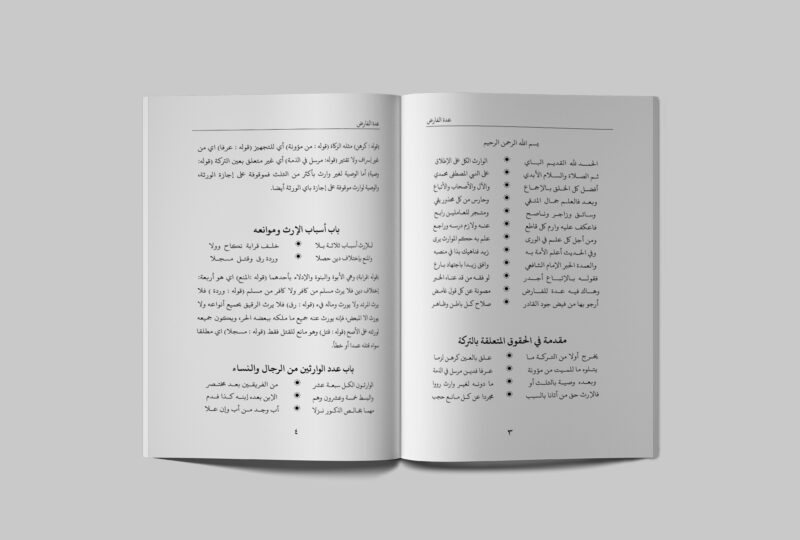 عدة الفارض
بسم الله الرحمن الرحيم
الحمد لله القديم الباقي ✺ الوارث الكل على الإطلاق
ثم الصلاة والسلام الأبدي ✺ على النبي المصطفى محمدي
أفضل كل الخلق بالإجماع ✺ والآل والأصحاب والأتباع
وبعد فالعلم جمال المتقي ✺ وحارس من كل محذور يقي
وسائق وزاجر وناصح ✺ ومتجر للعاملين رابح
فاعكف عليه وارم كل قاطع ✺ عنه ولازم درسه وراجع
ومن أجل كل علم في الورى ✺ علم به حكم الموارث يرى
وفي الحديث أعلم الأمة به ✺ زيد فناهيك بذا في منصبه
والعمدة الحبر الإمام الشافعي ✺ وافق زيدا باجتهاد بارع
فقوله بالاتباع أجدر ✺ لو فقه من قد عناه الخبر
وهاك فيه عدة للفارض ✺ مصونة عن كل قول غامض
أرجو بها من فيض جود القادر ✺ صلاح كل باطن وظاهر
مقدمة في الحقوق المتعلقة بالتركة
يخرج أولا من التركة ما ✺ علق بالعين كرهن لزما
يتلوه ما للميت من مؤونة ✺ عرفا فدين مرسل في الذمة
وبعده وصية بالثلث أو ✺ ما دونه لغير وارث رووا
فالإرث حق من أتانا بالسبب ✺ مجردا عن كل مانع حجب
٣
عدة الفارض
(قوله: كرهن) مثله الزكاة (قوله : من مؤونة) أي للتجهيز (قوله : عرفا) اي من
غير إسراف ولا تقتير (قوله: مرسل في الذمة) أي غير متعلق بعين التركة (قوله:
وصية) أما الوصية لغير وارث بأكثر من الثلث فموقوفة على إجازة الورثة،
والوصية لوارث موقوفة على إجازة باقي الورثة أيضا.
باب أسباب الإرث وموانعه
للإرث أسباب ثلاثة بلا ✺ خلف قرابة نكاح وولا
وامنع بإختلاف دين حصلا ✺ وردة رق وقتل مسجلا
(قوله: قرابة) وهي الأبوة والبنوة والإدلاء بأحدهما (قوله :امنع) اي هو أربعة:
إختلاف دين فلا يرث مسلم من كافر ولا كافر من مسلم (قوله : وردة ) فلا
يرث المرتد ولا يورث وماله فيء (قوله : رق) فلا يرث الرقيق بجميع أنواعه ولا
يورث الا المبعض، فإنه يورث عنه جميع ما ملكه ببعضه الحر، ويكون جميعه
لورثته على الأصح (قوله : قتل) وهو مانع للقتل فقط (قوله : مسجلا) اي مطلقا
سواء قتله عمدا أو خطأ.
باب عدد الوارثين من الرجال والنساء
الوارثون الكل سبعة عشر ✺ من الفريقين بعد مختصر
والبسط خمسة وعشرون وهم ✺ الإبن بعده إبنه كذا قدم
مهما بخالص الذكور نزلا ✺ أب وجد من أب وإن علا
٤